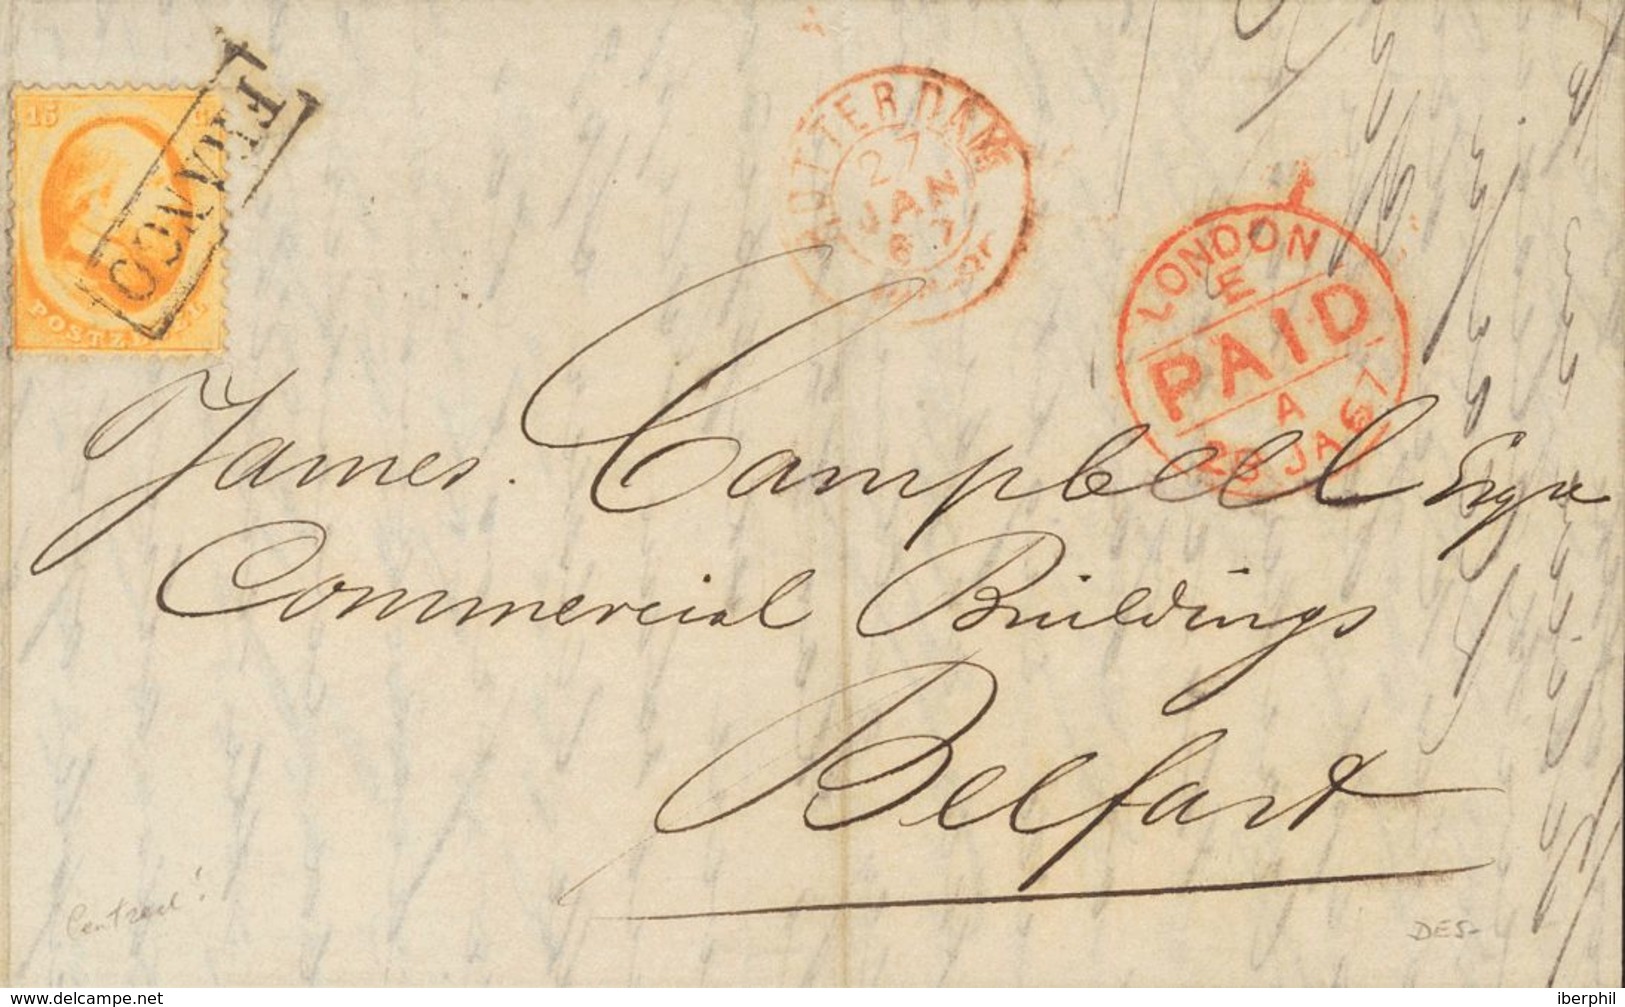 15 C
POSTZEGEL
FRANCO
ROTTERDAM
27
JAN
67
LONDON
E
PAID
A
28 JA 67
James. Campbell Esqre
Commercial Buildings
Belfast
Centraal!
DES-
www.delcampe.net
iberphil